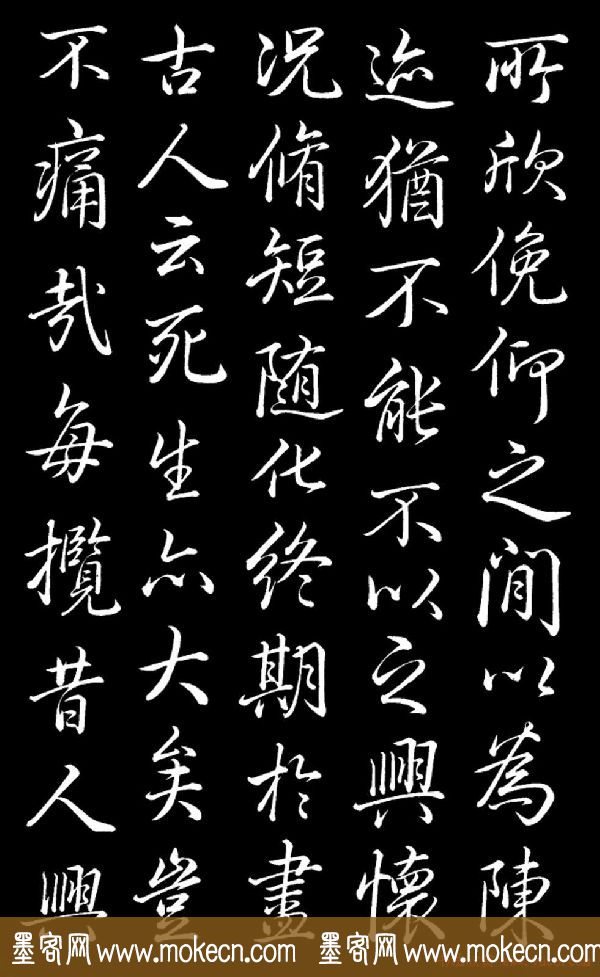 所欣俛仰之閒以為陳
迹猶不能不以之興懷
況脩短随化終期於盡
古人云死生亦大矣豈
不痛哉每攬昔人興
墨客网 www.mokecn.com 墨客网 www.mokecn.com